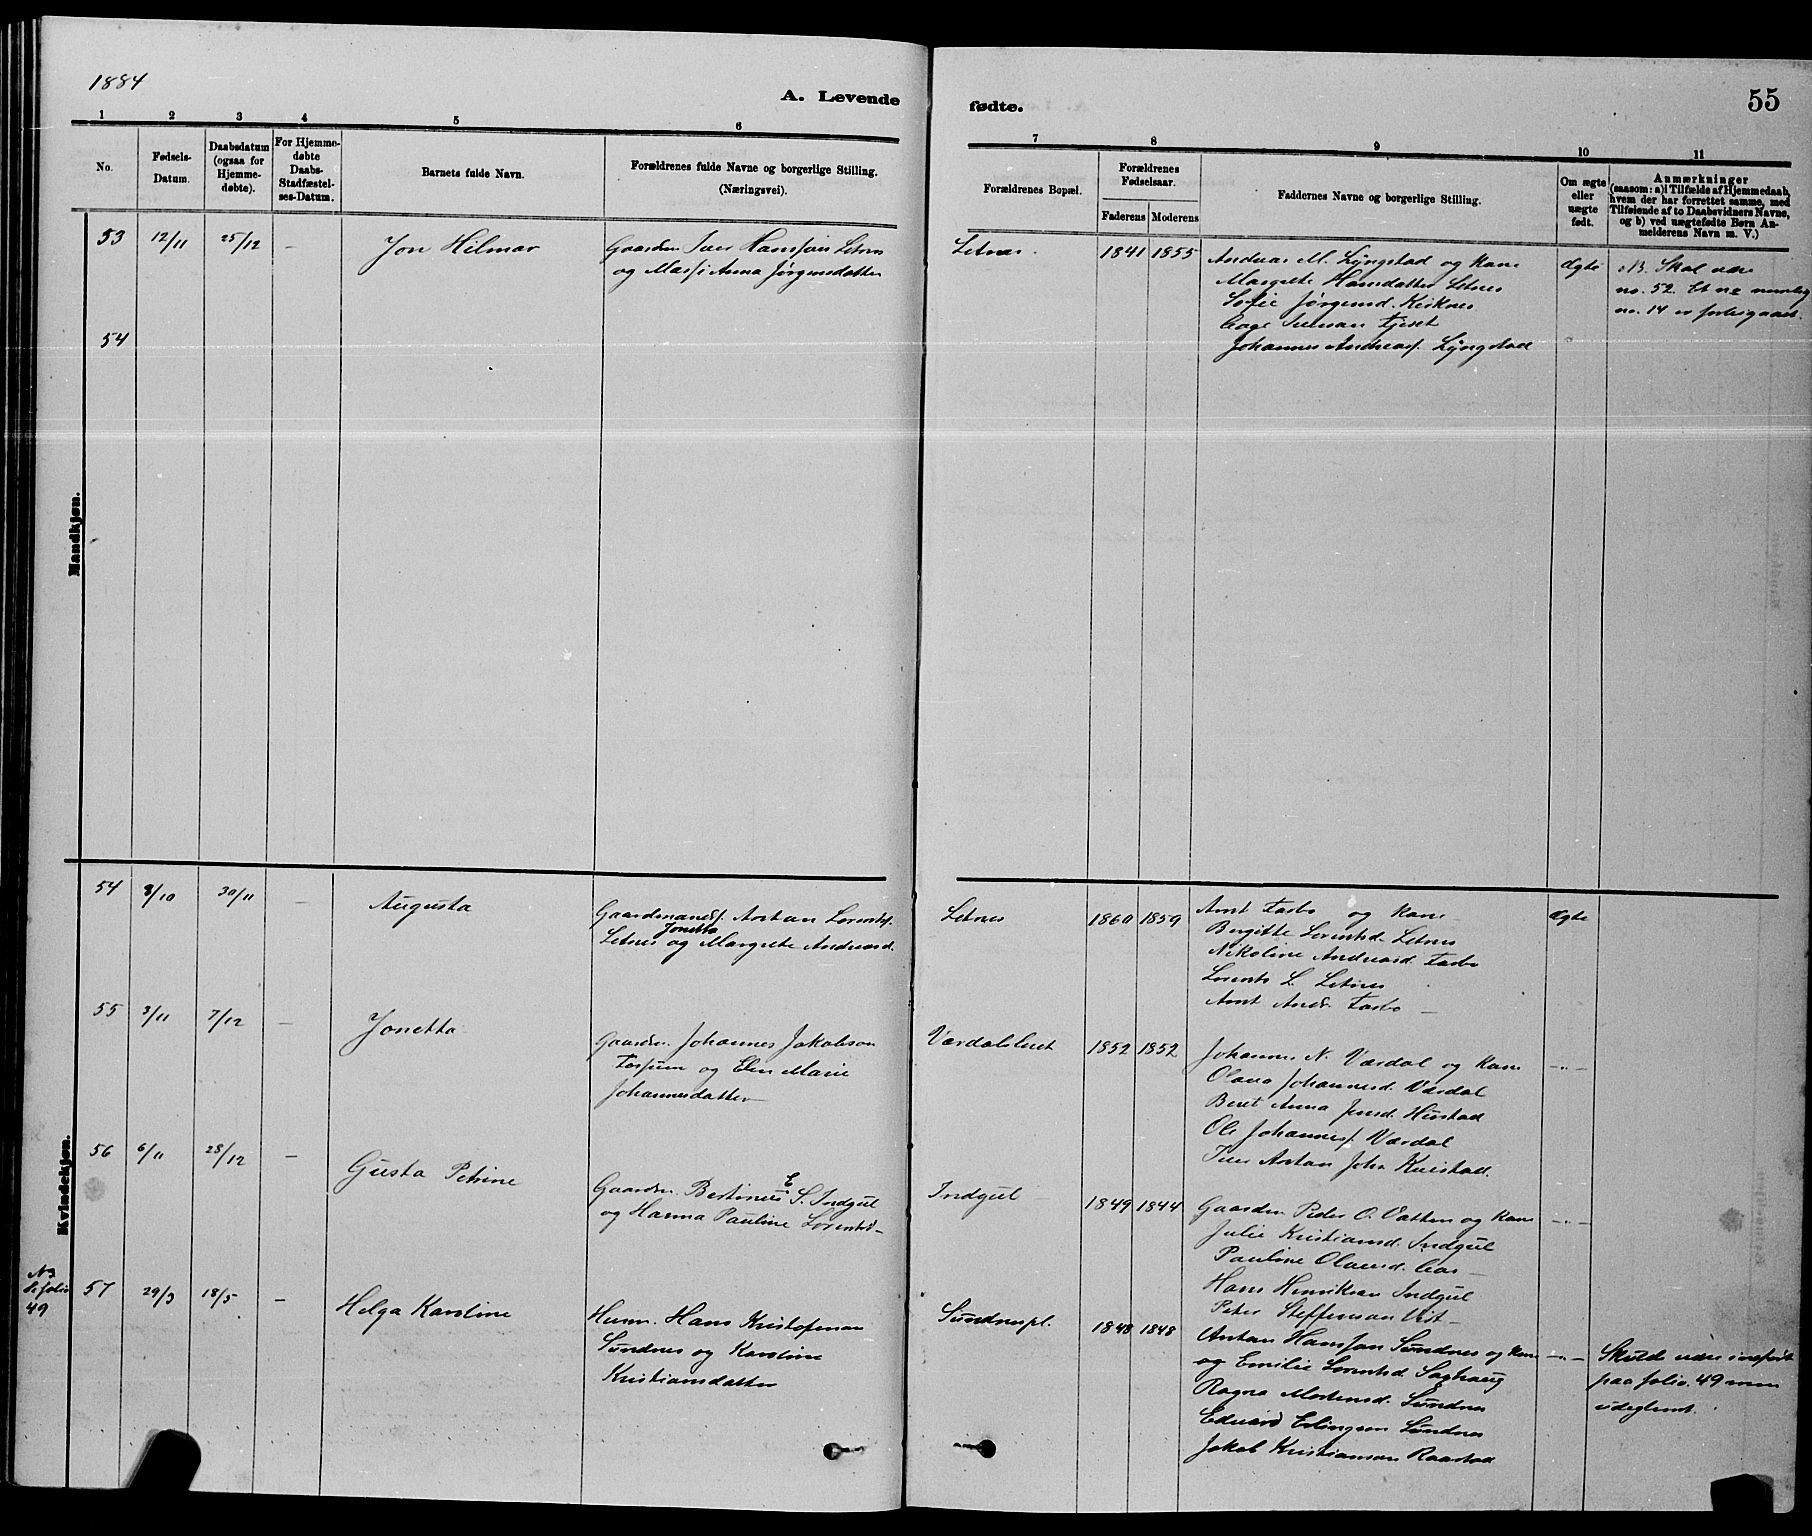 1884
A. Levende
fødte.
55
1 2 3 4 5 6
7 8 9 10 11
No.
Fødsels-
Datum.
Daabsdatum
(ogsaa for
Hjemme-
døbte).
For Hjemme-
døbte
Daabs-
Stadfæstel-
ses-Datum.
Barnets fulde Navn.
Forældrenes fulde Navne og borgerlige Stilling.
(Næringsvei).
Forældrenes Bopæl.
Forældrenes
Fødselsaar.
Faderens Moderens
Faddernes Navne og borgerlige Stilling.
Om ægte
eller
uægte
født.
Anmærkninger
(saasom: a) I Tilfælde af Hjemmedaab,
hvem der har forrettet samme, med
Tilføiende af to Daabsvidners Navne,
og b) ved uægtefødte Børn An-
melderens Navn m. V.)
Mandkjøn.
53 12/11 25/12 - Jon Hilmar
Gaardm. Iver Hanssøn Letnes
og Anna Jørgensdatter
Letnes. 1841 1855
Andreas M. Lyngstad og Kone
Margrete Hansdatter Letnes
Sofie Jørgensd. Kirknes
Johannes Andreass. Lyngstad
Ægte
NB. Skal være
no. 52. Et no nemlig
no. 14 er forbigaaet.
54
Kvindekjøn.
54 8/10 30/11 - Augusta
Gaardmands. Anton Lorents.
Jonetta
Letnes og Margrete Andreasd.
Letnes 1860 1859
Arnt og Kone
Birgitte Lorentsd. Letnes
Nikoline Andreasd.
Lorents L. Letnes
Arnt Andr.
Ægte
55 3/11 7/12 - Jonetta
Gaardm. Johannes Jakobsen
og Elen Marie
Johannesdatter
Værdalsleret 1852 1852
Johannes N. Værdal og Kone
Olava Johannesd. Værdal
Beret Anna Hustad
Ole Johanness. Værdal
Iver Anton Joh.
-"-
56 6/11 28/12 - Gusta Petrine
Gaardm. Bertinus E S. Indgul
og Hanna Pauline Lorentsd.
Indgul 1849 1844
Gaardm. Peder O. Vatten og Kone
Julie Kristiansd. Indgul
Pauline Olausd. Aas
Hans Henriksen Indgul
Peter Steffensen Vist
-"-
NB
Se folio
49
57 29/3 18/5 - Helga Karoline
Husm. Hans Kristofersen
Sundnes og Karoline
Kristiansdatter
Sundnespl. 1848 1848
Anton Hanssøn Sundnes og Kone
og Emilie Lorentsd. Saghaug
Ragna Mortensd. Sundnes
Eduard Erlingsen Sundnes
Jakob Kristiansen Raastad
-"-
Skulde være indført
paa folio 49 men
udeglemt.